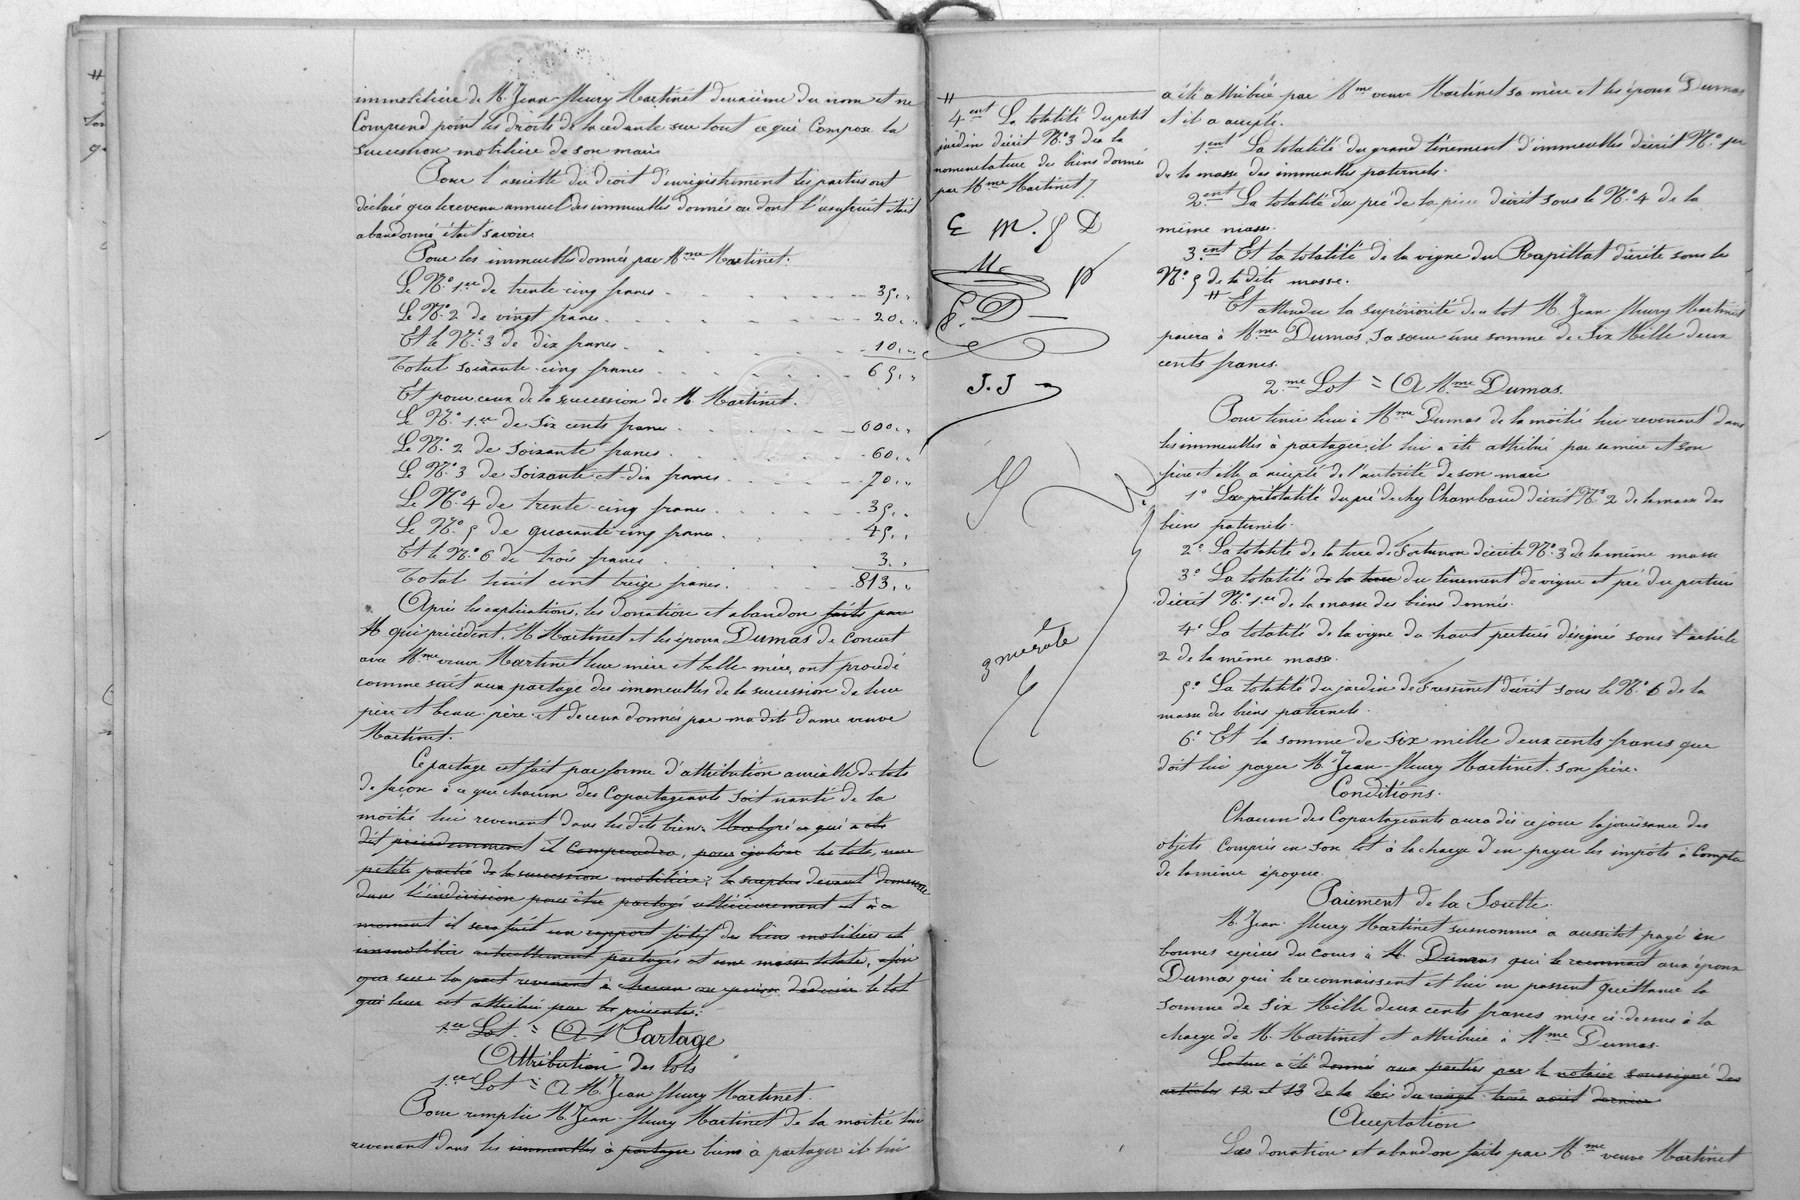 immobilière de M. Jean-fleury Martinet deuxième du nom et ne
Comprend point les droits de la cédante sur tout ce qui Compose la
succession mobilière de son mari.
Pour l'assiette du droit d'enregistrement les parties ont
déclaré que le revenu annuel des immeubles donnés ou dont l'usufruit était
abandonné était savoir
Pour les immeubles donnés par Mme Martinet.
Le N°. 1er de trente-cinq francs 35,,
Le N°. 2 de vingt francs 20,,
Et le N°. 3 de dix francs 10,,
Total soixante-cinq francs 65,,
Et pour ceux de la succession de M. Martinet.
Le N°. 1er de six cents francs 600,,
Le N°. 2 de soixante francs 60,,
Le N°. 3 de soixante-et-dix francs 70,,
Le N°. 4 de trente-cinq francs 35,,
Le N°. 5 de quarante-cinq francs 45,,
Et le N°. 6 de trois francs 3,,
Total huit cent treize francs 813,,
Après les explications, les donation et abandon faits par
M qui précèdent, M. Martinet et les époux Dumas de Concert
avec Mme veuve Martinet leur mère et belle mère, ont procédé
comme suit aux partage des immeubles de la succession de leur
père et beau-père et de ceux donnés par ma dite dame veuve
Martinet.
Ce partage est fait par forme d'attribution amiable de lots
de façon à ce que chacun des Copartageants soit nanti de la
moitié lui revenant dans les dits biens. Malgré ce qui a été
dit précédemment il Comprendra, pour égaliser les lots, une
petite partie de la succession mobilière; le surplus devant demeurer
dans l'indivision pour être partagé ultérieurement et à ce
moment il sera fait un rapport fictif des biens mobiliers et
immobiliers actuellement partagés et une masse totale, afin
que sur la part revenant à chacun on puisse déduire le lot
qui leur est attribué par les présentes.
1er Lot = A Partage
Attribution des lots
1er Lot = A M. Jean fleury Martinet.
Pour remplir M. Jean-fleury Martinet de la moitié lui
revenant dans les immeubles à partager biens à partager il lui
4ent La totalité du petit
jardin décrit N°. 3 de la
nomenclature des biens donnés
par Mme Martinet /.
E M. f D
Mc P
E. D
J. J
3me rôle
a été attribué par Mme veuve Martinet sa mère et les époux Dumas
et il a accepté.
1.ent La totalité du grand tènement d'immeubles décrit N°. 1er
de la masse des immeubles paternels.
2.ent La totalité du pré de la décrit sous le N°. 4 de la
même masse.
3.ent Et la totalité de la vigne du Rapillat décrite sous le
N°. 5 de la dite masse.
# Et attendu la supériorité de ce lot M. Jean fleury Martinet
paiera à Mme Dumas, sa sœur une somme de Six Mille deux
cents francs.
2.me Lot = A Mme Dumas.
Pour tenir lieu à Mme Dumas de la moitié lui revenant dans
les immeubles à partager, il lui a été attribué par sa mère et son
frère et elle a accepté de l'autorité de son mari
1° La totalité du pré de chez Chambaud décrit N°. 2 de la masse des
biens paternels.
2° La totalité de la terre de Fortunon décrite N°. 3 de la même masse
3° La totalité de la terre du tènement de vigne et pré du pertuis
décrit N°. 1er de la masse des biens donnés.
4° La totalité de la vigne du haut pertuis désignée sous l'article
2 de la même masse.
5° La totalité du jardin de décrit sous le N°. 6 de la
masse des biens paternels.
6° Et la somme de six mille deux cents francs que
doit lui payer M. Jean-fleury Martinet son frère.
Conditions.
Chacun des Copartageants aura dès ce jour la jouissance des
objets Compris en son lot à la charge d'en payer les impôts à Compter
de la même époque.
Paiement de la Soulte.
M. Jean-fleury Martinet susnommé a aussitôt payé en
bonnes espèces du cours à M. Dumas qui le reconnait aux époux
Dumas qui le reconnaissent et lui en passent quittance la
somme de six Mille deux cents francs mise ci-dessus à la
charge de M. Martinet et attribuée à Mme Dumas.
Lecture a été donnée aux parties par le notaire soussigné des
articles 12 et 13 de la loi du vingt-trois août dernier
Acceptation
Les donation et abandon faits par Mme veuve Martinet